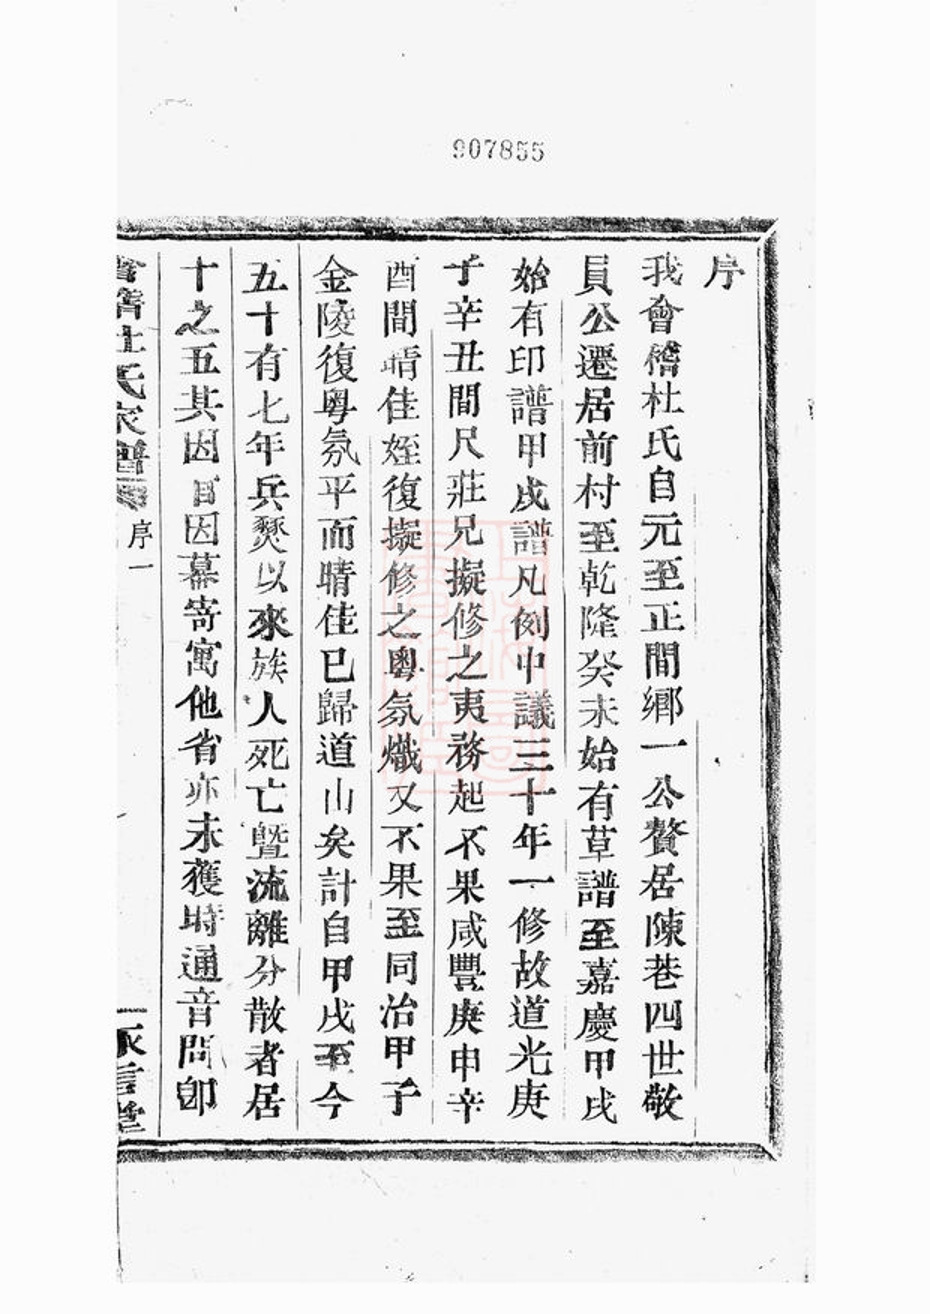 907855
序
我會稽杜氏自元至正間鄉一公贅居陳巷四世敬
員公遷居前村至乾隆癸未始有草譜至嘉慶甲戌
始有印譜甲戌譜凡例中議三十年一修故道光庚
子辛丑間尺莊兄擬修之夷務起不果咸豐庚申辛
酉間晴佳姪復擬修之粵氛熾又不果至同治甲子
金陵復粵氛平而晴佳已歸道山矣計自甲戌至今
五十有七年兵燹以來族人死亡暨流離分散者居
十之五其因官因幕寄寓他省亦未獲時通音問卽
會稽杜氏家譜 序一